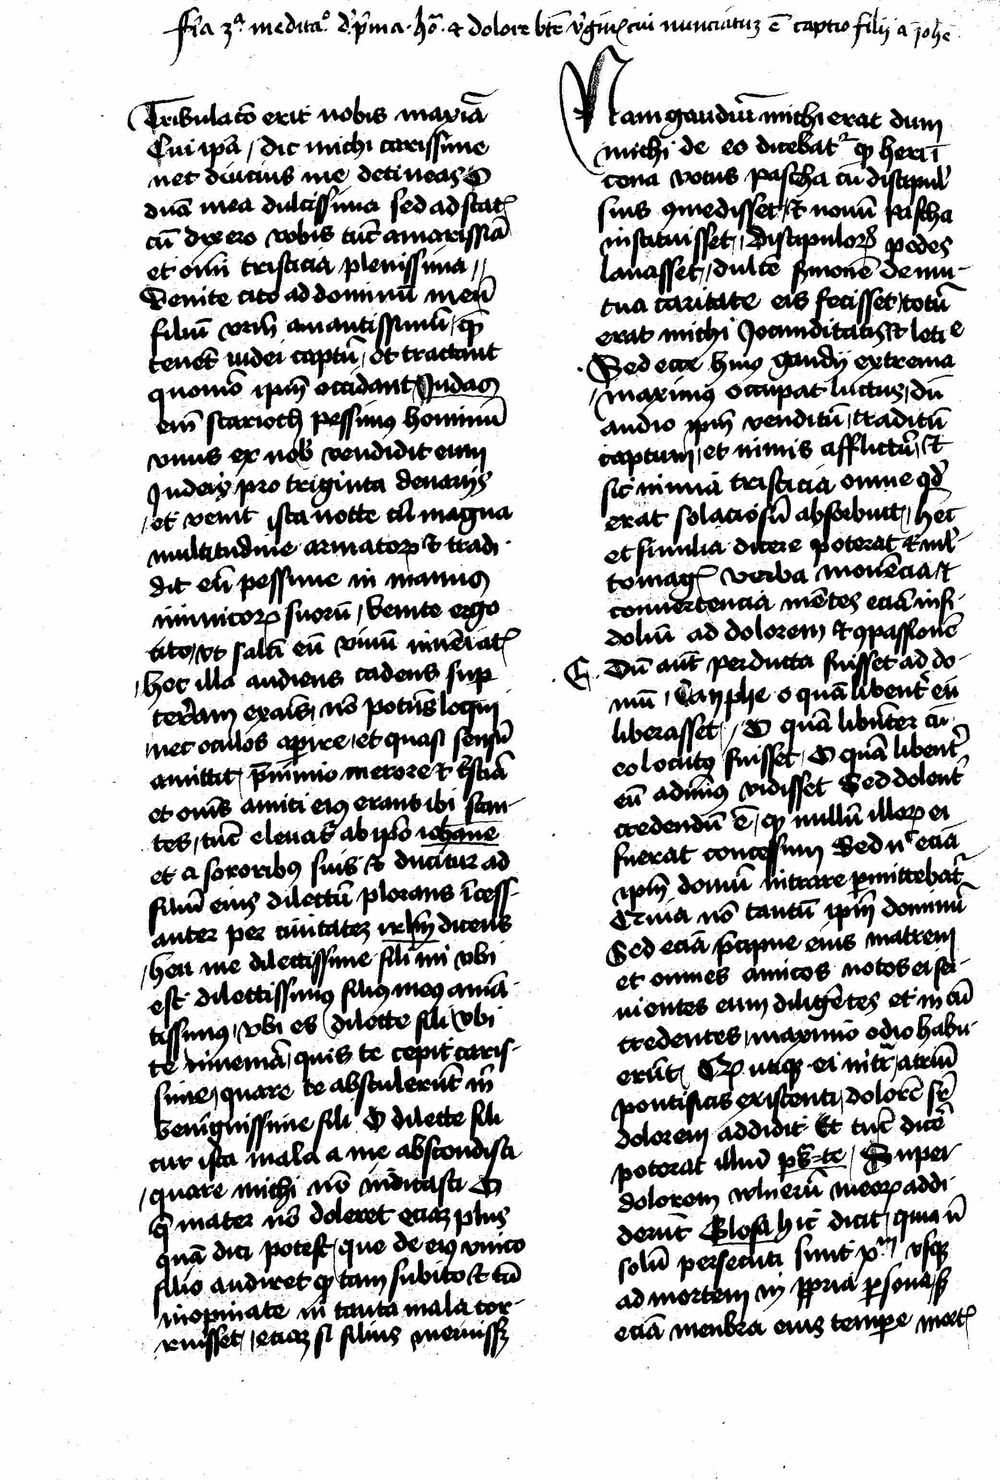 fīa 3ᵃ meditaᵒ d' p̄ma hōᵃ & dolore btē v̄gīs cui nunciatuʒ ē captio filii a iohē
Tribulacō erit nobis maxīa
Cui ip̄a / dic michi carissime
nec diucius me detineas O
dn̄a mea dulcissima sed ad
cū dixero vobis tūc amarissīa
et oīni tristicia plenissima //
Venite cito ad dominū meū
filiū vr̄m amantissimū / q̄
tenēt iudei captū / et tractant
quomō ip̄m occidant Judas
eīn scarioth pessimus hominū
vnus ex nobꝭ vendidit eum
Judeis pro triginta denariis
/ et venit ista nocte cū magna
multitudine armatorꝝ & tradi-
dit eū pessime in manus
inimicorꝝ suorū / Venite ergo
cito / vt saltī eū viuū
/ hoc illa audiens cadens sup
terram exāīs / nō potuīs loqui
nec oculos aperire / et quasi sensū
amittit p̄ nimio merore & tr̄sticiā
et om̄s amici eius erant ibi stan-
tes / tūc eleuat̄ ab ip̄o iohāne
et a sororibus suis & ducitur ad
filiū eius dilectū plorans īcess-
anter per ciuitateʒ irl̄m dicens
/ heu me dilectissime fili mi vbi
est dilectissimus filius meus amā-
tissimus / vbi es dilecte fili / vbi
te inueniā / quis te cepit caris-
sime / quare te abstulerūt m̄
benignissime fili O dilecte fili
cur ista mala a me abscondisti
/ quare michi nō indicasti O
q̄ mater nō doleret eciaʒ plus
quā dici potest / que de eius vnico
filio audiret qꝫ tam subito & tā
inopinate in tanta mala cor-
ruisset / eciaʒ si filius meruissʒ
Nam gaudiū michi erat dum
michi de eo dicebat̄ qꝫ heri ī
cena vetus pascha cū discipul'
suis ꝯmedisset / & nouū pascha
instituisset / discipulorꝝ pedes
lauasset / dulcē s̄monē de mu-
tua caritate eis fecisset / totū
erat michi Jocunditatis & leticie
Sed ecce huius gaudii extrema
/ maximus occupat luctus / dū
audio ip̄m venditū / traditū
captum / et nimis afflictū / &
sic nimia tristicia omne qd̄
erat solaciosū absorbuit / hec
et similia dicere poterat & ml'-
tomagꝭ verba mouēcia / &
conuertencia mētes eciā infi-
deliū ad dolorem & ꝯpassionē
Dū aūt perducta fuisset ad do-
mū / Cayphe o quā libent̄ eū
liberasset / O quā libēter cū
eo locuta fuisset / O quā libent̄
eū adminus vidisset Sed dolent̄
credendū ē / qꝫ nullū illorꝝ ei
fuerat concessum Sed nᶜ eciā
ip̄m domū intrare p̄mittebat̄
Quia nō tantū ip̄m dominū
Sed eciā p̄cipue eius matrem
et omnes amicos notos ei ser-
uientes eum diligētes et in eū
credentes / maximo odio habu-
erūt / Qꝫ utiqꝫ ei intra atriū
pontificis existenti / dolorē sr̄
dolorem addidit Et tūc dicē
poterat illud ps̄-te / Super
dolorem vulnerū meorꝝ addi-
derūt Glosa hic dicit / quia nō
solū persecuti sunt xp̄m vsqꝫ
ad mortem in ꝓpria persona / s̄
eciā menbra eius tempore mortꝭ